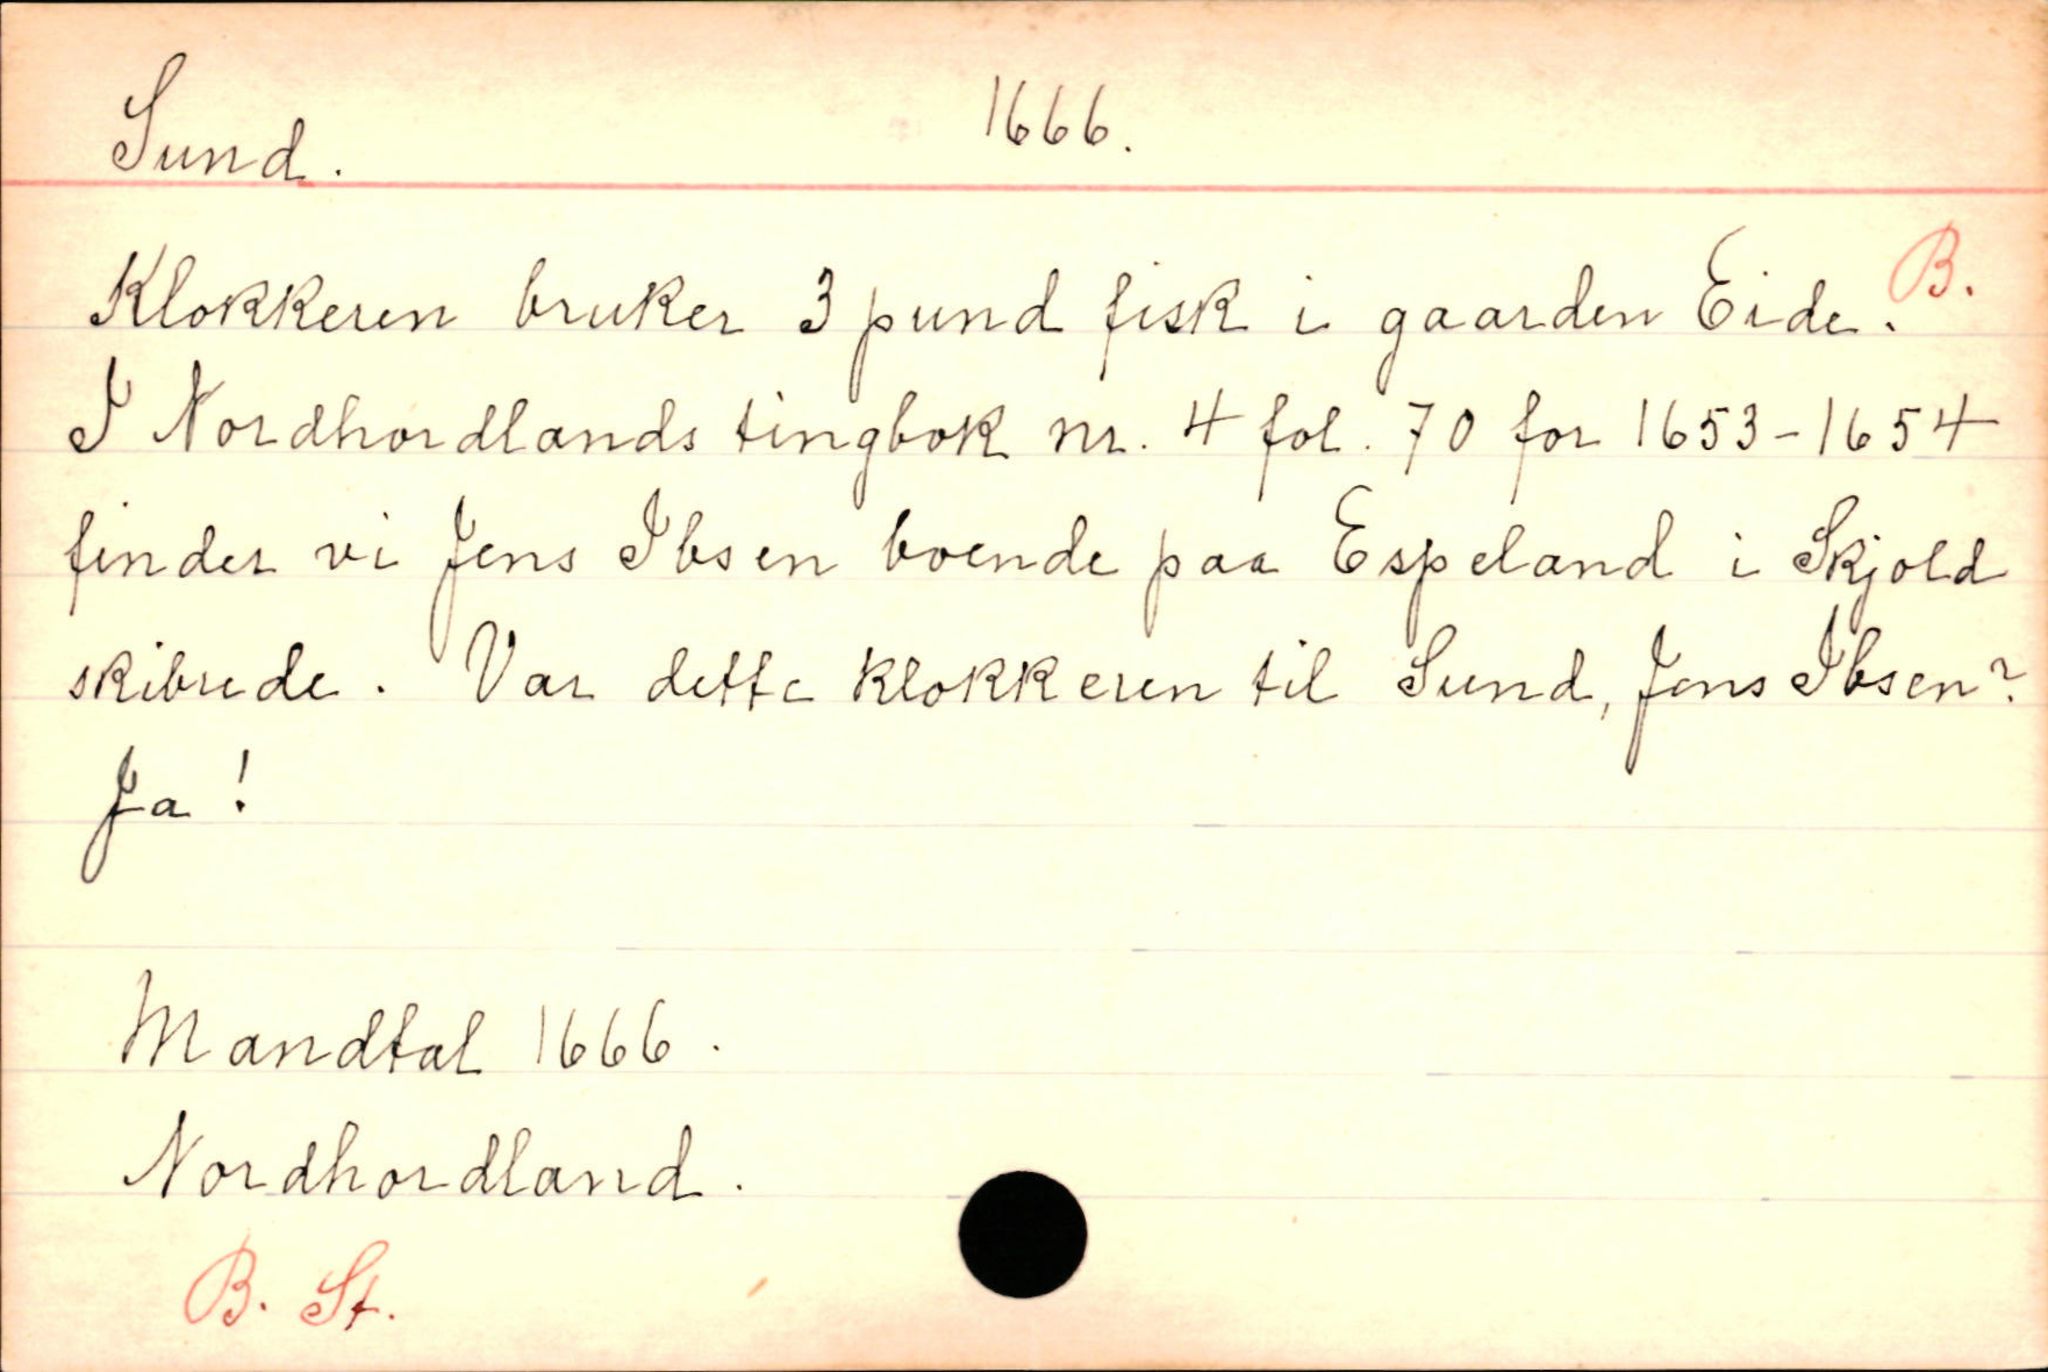 Sund. 1666.
Klokkeren bruker 3 pund fisk i gaarden Eide. B.
I Nordhordlands tingbok nr. 4 fol. 70 for 1653-1654
finder vi Jens Ibsen boende paa Espeland i Skjold
skibrede. Var dette klokkeren til Sund, Jens Ibsen?
Ja!
Mandtal 1666.
Nordhordland.
B. St.